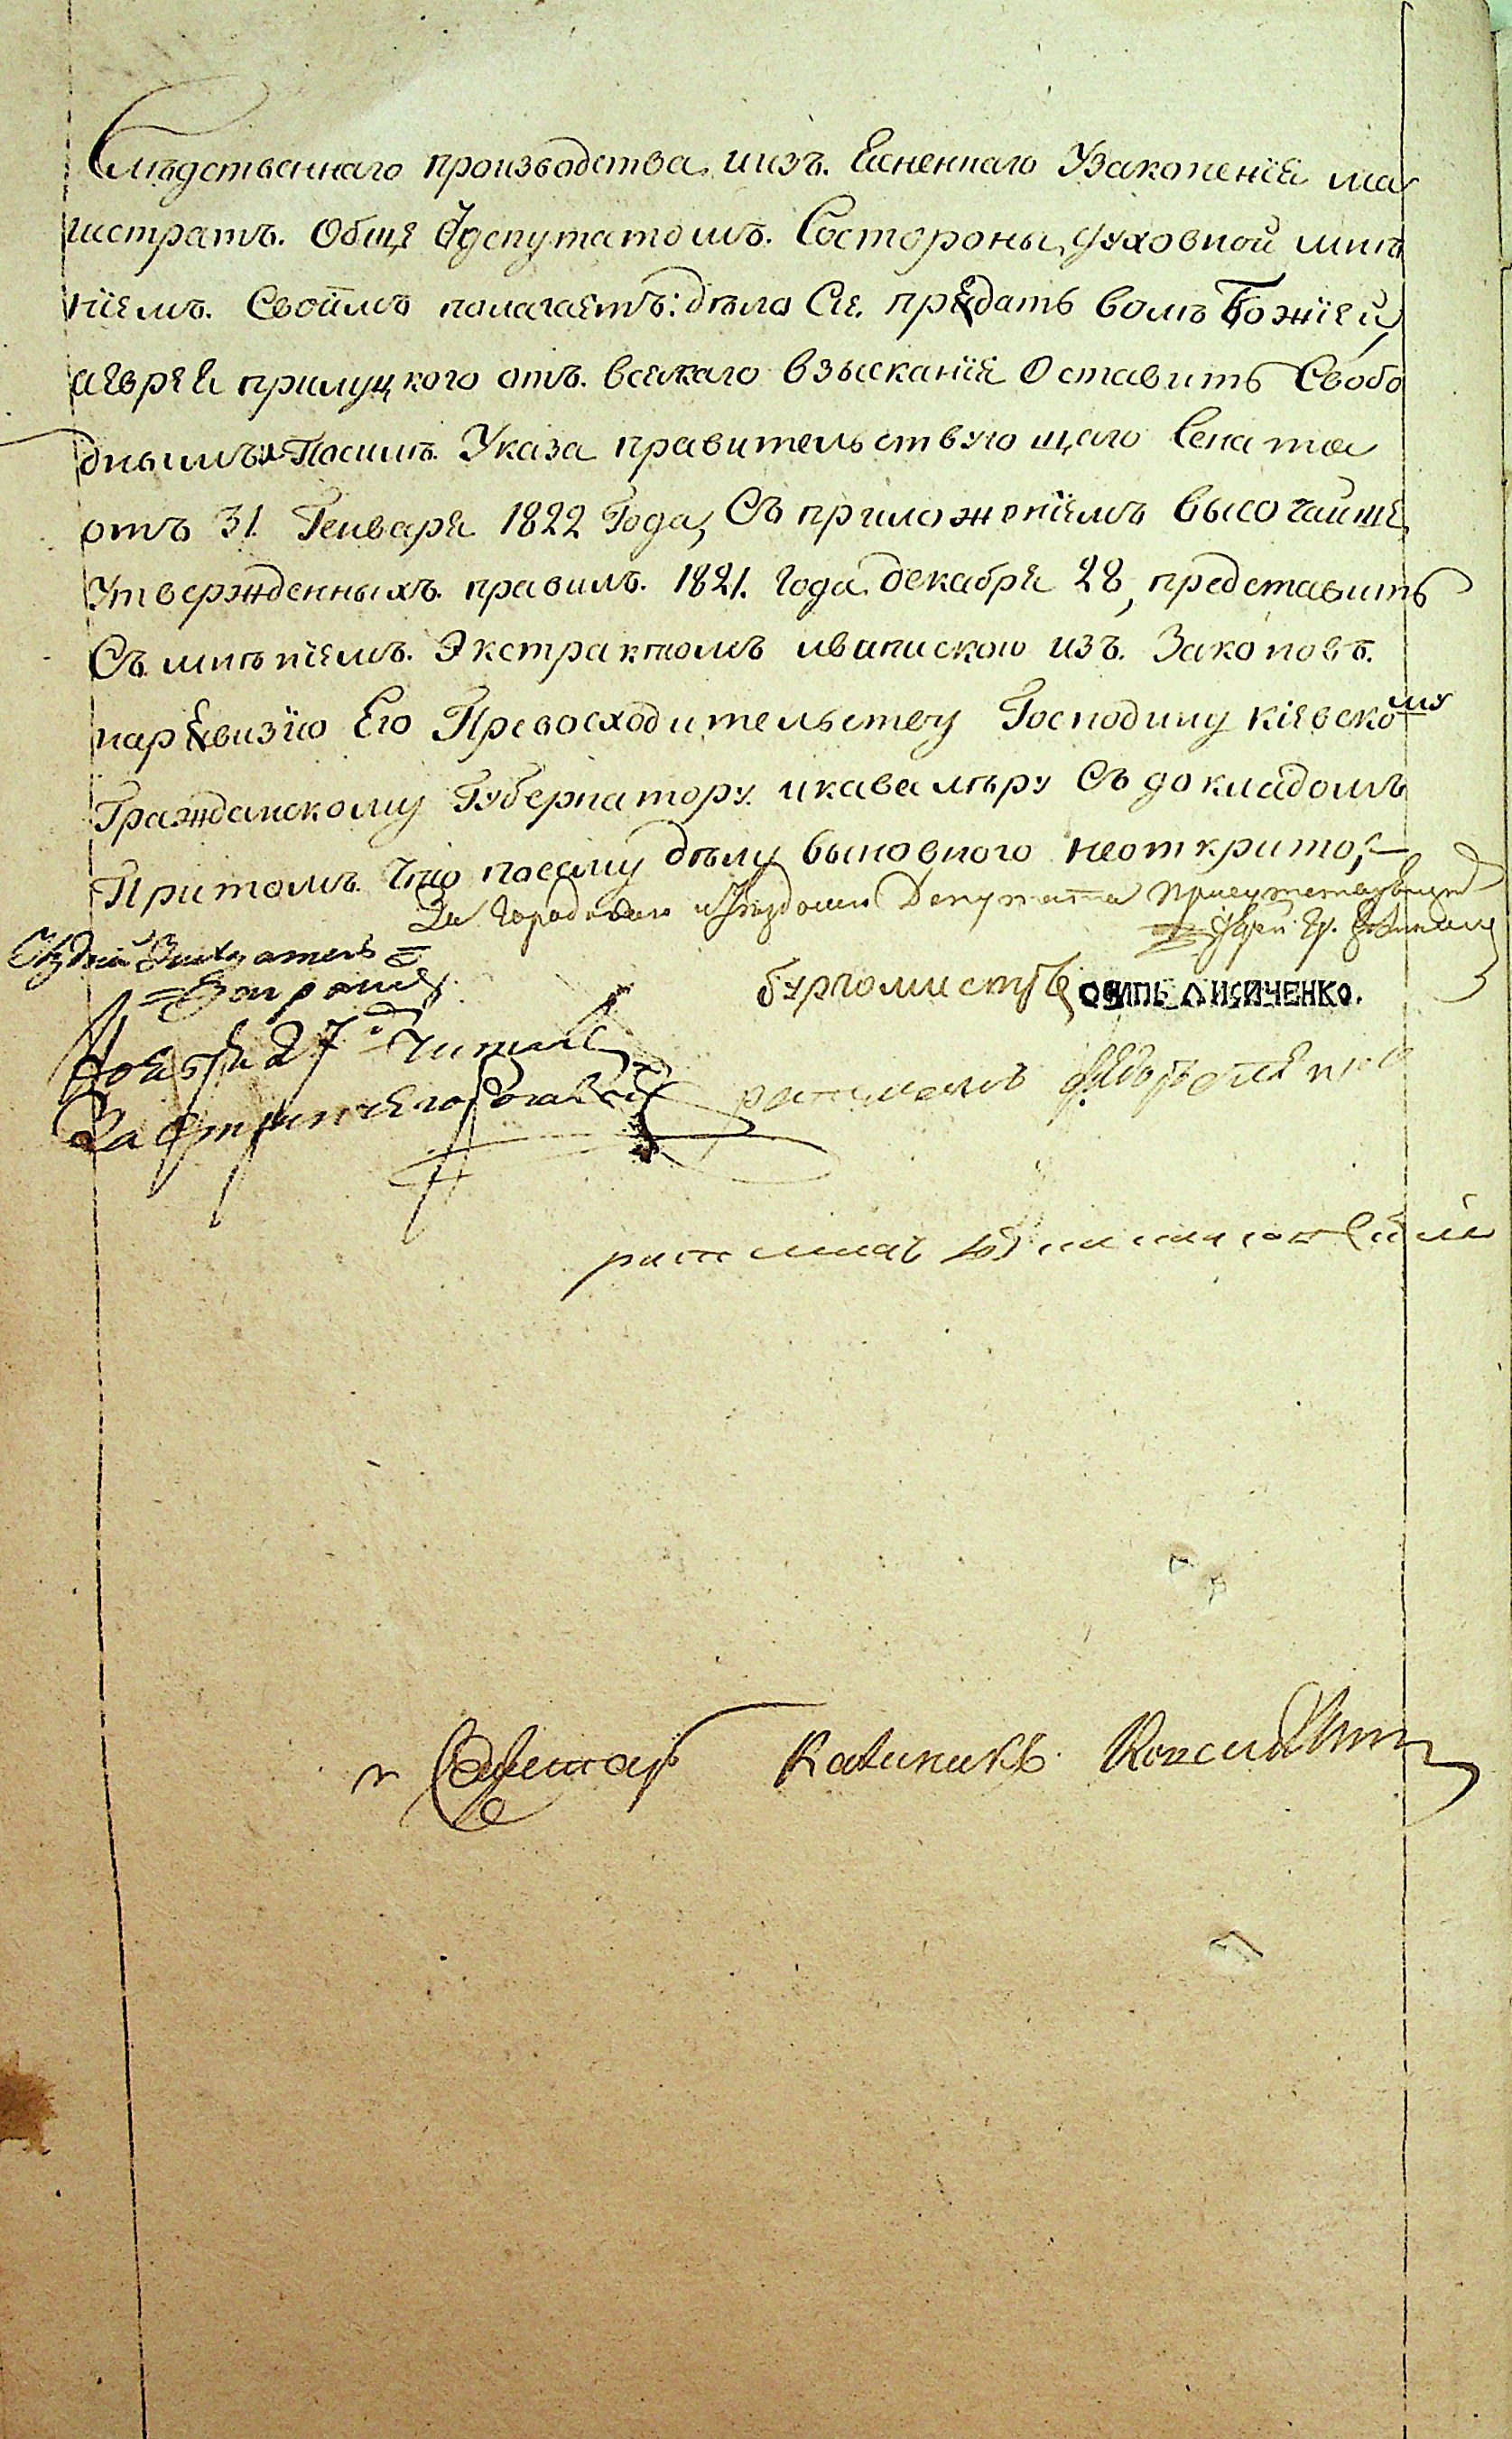 Слѣдственнаго производства, иизъ. Ясненнаго Узаконенія ма
гистратъ. Обще Здепутатомъ. Состороны, духовной мнѣ
ніемъ. Своимъ полагаетъ: дѣло Сіе. предать волѣ Божіей,
аеврея прилуцкого отъ. всякаго взысканія Оставить Свобо
днымъ, Посилѣ. Указа правительствующаго Сената
отъ 31. Генваря 1822 Года, Съ приложеніемъ высочайше
Утвержденныхъ. правилъ. 1821. года. декабря 28, представить
Съ мнѣніемъ. Экстрактомъ ивыпискою изъ. Законовъ.
наревизію Его Превосходительству Господину кіевскому
Гражданскому Губернатору. икавалѣру Съ докладомъ
Притомъ. Что посему дѣлу, выновного неоткрито,
За Городского Депутата
бургомистръ ОСИПЪ ЛИСИЧЕНКО.
Ноября 27 читалъ
ратманъ
ратманъ
Секретарь Калиникъ